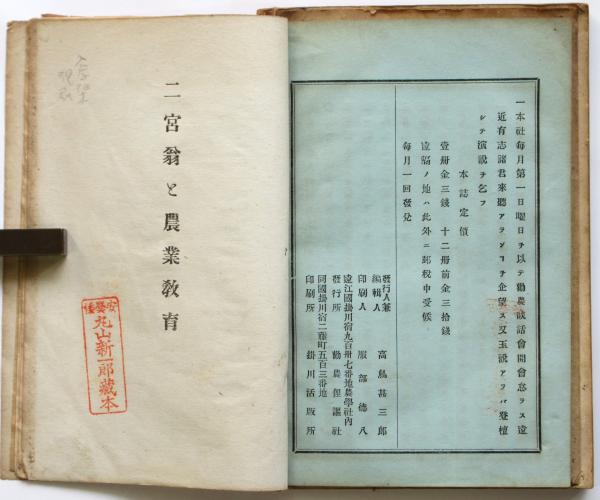 一本社每月第一日曜日ヲ以テ勸農談話會開會怠ラス遠
近有志諸君來聽アランコヿヲ企望ス又玉說アラバ登壇
シテ演說ヲ乞フ
本誌定價
壹冊金三錢 十二冊前金三拾錢
遠隔ノ地ハ此外ニ郵稅申受候
每月一回發兌
發行人兼編輯人 高鳥甚三郎
印刷人 服部德八
遠江國掛川宿九百卅七番地農學社內
發行所 勸農俚謳社
同國掛川宿二藤町五百三番地
印刷所 掛川活版所
二宮翁と農業敎育
丸山新一郎藏本